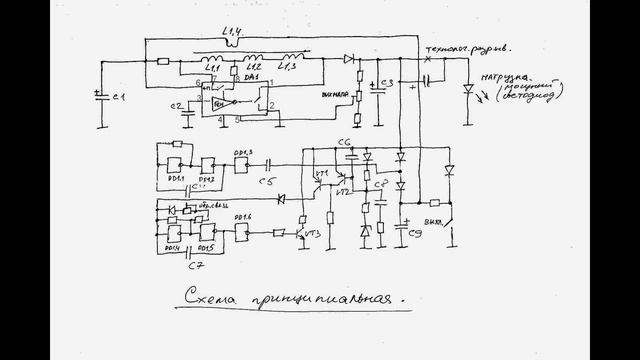 L1,4
технолог. разрыв.
L1,1
L1,2
L1,3
6
7
8
DA1
1
C1
C2
3
ген
2
4
5
вкл
C3
+
нагрузка.
(мощный
светодиод)
DD1.1
DD1.2
DD1.3
C5
C6
VT1
VT2
C8
обр. связь
DD1.4
DD1.5
DD1.6
C7
VT3
C9
+
вкл.
Схема принципиальная.